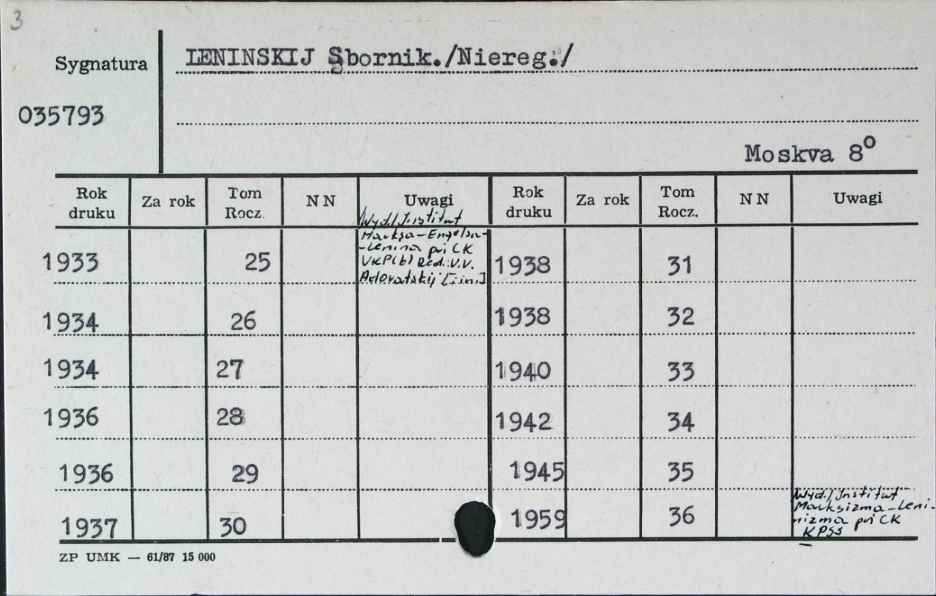 3
Sygnatura
LENINSKIJ Sbornik./Niereg./
035793
Moskva 8°
Rok druku Za rok Tom Rocz. NN Uwagi Rok druku Za rok Tom Rocz. NN Uwagi
Wyd./Institut
Marksa-Engelsa-
-Lenina pri CK
VKP(b) Red. V.V.
Adoratskij [i in.]
1933 25 1938 31
1934 26 1938 32
1934 27 1940 33
1936 28 1942 34
1936 29 1945 35
1937 30 1959 36
Wyd./Institut
Marksizma-Leni-
nizma pri CK
KPSS
ZP UMK — 61/87 15 000